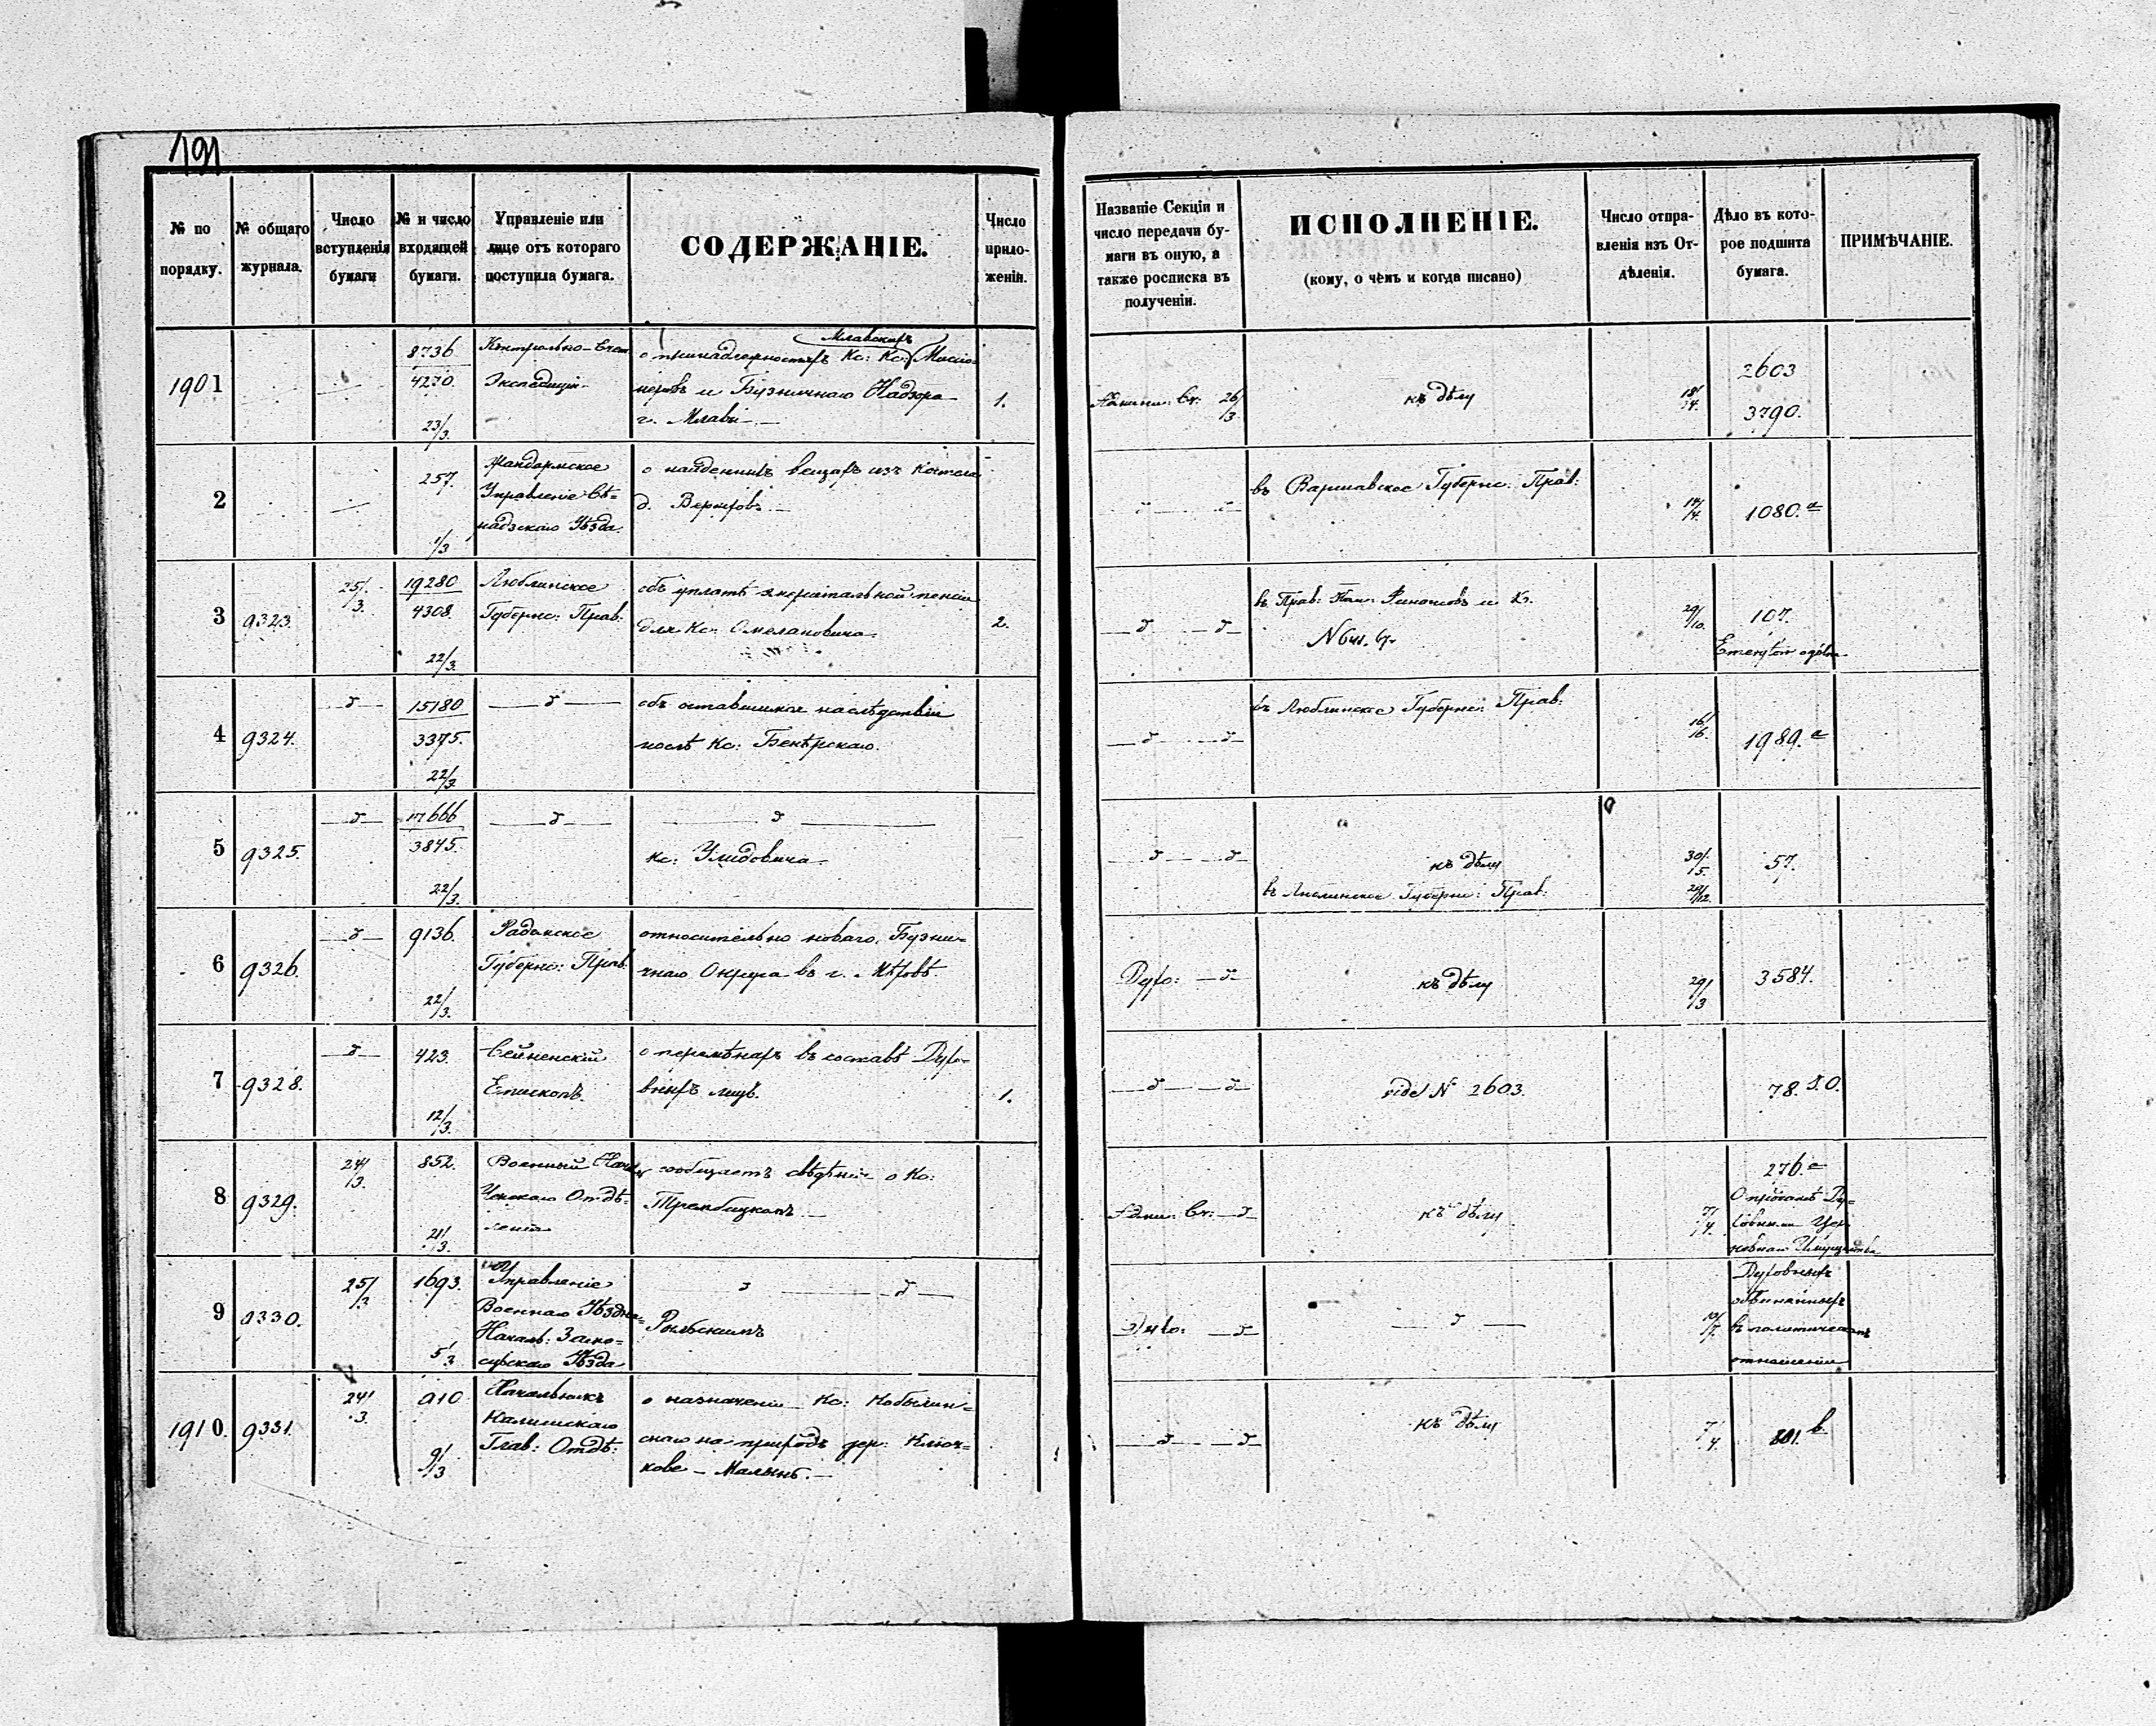 191
№ по порядку.
№ общаго журнала.
Число вступленія бумаги
№ и число входящей бумаги.
Управленіе или лице отъ котораго поступила бумага.
СОДЕРЖАНІЕ.
Число приложеній.
Названіе Секціи и число передачи бумаги въ оную, а также росписка въ полученіи.
ИСПОЛНЕНІЕ.
(кому, о чемъ и когда писано)
Число отправленія изъ Отдѣленія.
Дѣло въ которое подшита бумага.
ПРИМѢЧАНІЕ.
1901
8736
4270.
23/3.
Контрольно-Счет.
Экспедиція
Млавскихъ
о принадлежностяхъ Кс: Кс: Миссіо-
неровъ и Бузничнаго Надзора
г. Млавы
1.
Админи: Ст: 26/3
къ дѣлу
18/4.
2603
3790.
2
257.
1/3
Жандармское
Управленіе Сѣ-
надзскаго Уѣзда.
о найденныхъ вещахъ изъ костела
д.
въ Варшавское Губернс: Прав:
14/4.
1080.a
3
9323.
25/3.
19280
4308.
22/3.
Люблинское
Губернс: Прав:
объ уплатѣ эмеритальной пенсіи
для Кс: Омелановича
2.
въ Прав: Ком: Финансовъ и К.
29/10.
107.
Emerytów ogóln
4
9324.
15180
3375.
22/3.
объ оставшихся наслѣдствіи
послѣ Кс: Бенѣрскаго.
въ Люблинское Губернс: Прав:
16/16.
1989.a
5
9325.
17666
3845.
22/3.
Кс: Улидовича
къ дѣлу
въ Люблинское Губернс: Прав:
30/5.
20/12.
57.
6
9326.
9136.
22/3.
Радомское
Губернс: Прав:
относительно новаго Бузни-
чнаго Округа въ г.
Духо:
къ дѣлу
29/3
3584.
7
9328.
423.
12/3.
Сейненскій
Епископъ.
о перемѣнахъ въ составѣ Духо-
вныхъ лицъ.
1.
vide N 2603.
78. S.O.
8
9329.
24/3.
852.
21/3.
Военный Нач:
Отдѣ-
ленія
сообщаетъ свѣдѣнія о Кс:
Трембицкомъ
Адми: Ст:
къ дѣлу
7/4.
276.a
9
9330.
25/3
1693.
5/3
Управленіе
Военнаго Уѣздна-
Началь:
Уѣзда
Рыльскимъ
Духо:
10/7.
Духовныхъ
обвиняемыхъ
въ политическомъ
отношеніи
1910.
9331.
24/3.
910
9/3
Начальникъ
Калишскаго
Глав: Отдѣ:
о назначеніи Кс: Кобылин-
скаго на приходъ дер: Ключ-
кове - Малынъ.
къ дѣлу
7/4.
801.b.